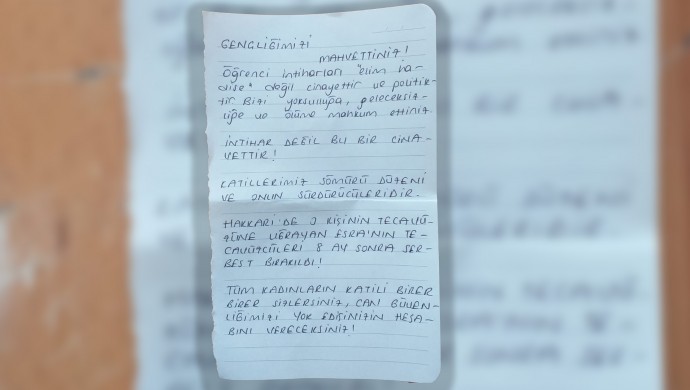 GENÇLİĞİMİZİ
MAHVETTİNİZ!
Öğrenci intiharları "elim ha-
dise" değil cinayettir ve politik-
tir Bizi yoksulluğa, geleceksiz-
liğe ve ölüme mahkum ettiniz.
İNTİHAR DEĞİL BU BİR CİNA-
YETTİR!
KATİLLERİMİZ SÖMÜRÜ DÜZENİ
VE ONUN SÜRDÜRÜCÜLERİDİR.
HAKKARİ'DE 3 KİŞİNİN TECAVÜ-
ZÜNE UĞRAYAN ESRA'NIN TE-
CAVÜZCÜLERİ 8 AY SONRA SER-
BEST BIRAKILDI!
TÜM KADINLARIN KATİLİ BİRER
BİRER SİZLERSİNİZ, CAN GÜVEN-
LİĞİMİZİ YOK EDİŞİNİZİN HESA-
BINI VERECEKSİNİZ!